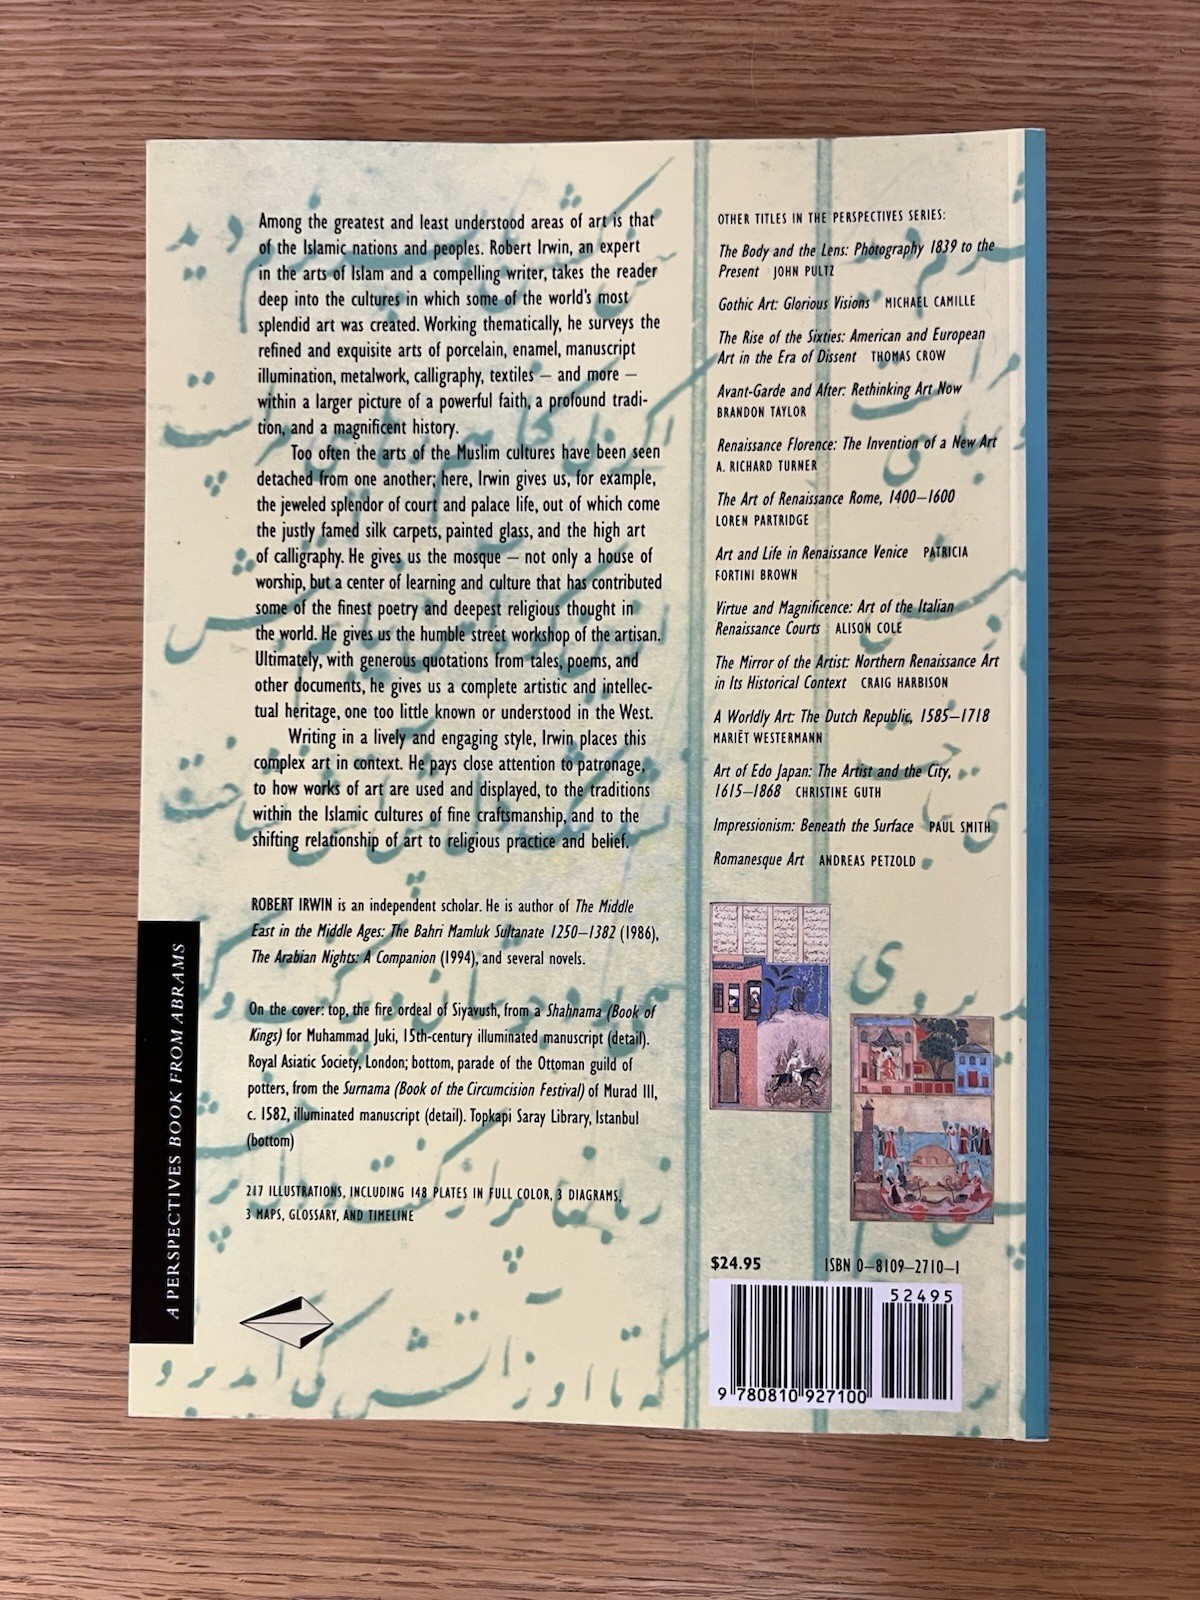 Among the greatest and least understood areas of art is that
of the Islamic nations and peoples. Robert Irwin, an expert
in the arts of Islam and a compelling writer, takes the reader
deep into the cultures in which some of the world's most
splendid art was created. Working thematically, he surveys the
refined and exquisite arts of porcelain, enamel, manuscript
illumination, metalwork, calligraphy, textiles – and more –
within a larger picture of a powerful faith, a profound tradi-
tion, and a magnificent history.
Too often the arts of the Muslim cultures have been seen
detached from one another; here, Irwin gives us, for example,
the jeweled splendor of court and palace life, out of which come
the justly famed silk carpets, painted glass, and the high art
of calligraphy. He gives us the mosque – not only a house of
worship, but a center of learning and culture that has contributed
some of the finest poetry and deepest religious thought in
the world. He gives us the humble street workshop of the artisan.
Ultimately, with generous quotations from tales, poems, and
other documents, he gives us a complete artistic and intellec-
tual heritage, one too little known or understood in the West.
Writing in a lively and engaging style, Irwin places this
complex art in context. He pays close attention to patronage,
to how works of art are used and displayed, to the traditions
within the Islamic cultures of fine craftsmanship, and to the
shifting relationship of art to religious practice and belief.
ROBERT IRWIN is an independent scholar. He is author of The Middle
East in the Middle Ages: The Bahri Mamluk Sultanate 1250–1382 (1986),
The Arabian Nights: A Companion (1994), and several novels.
On the cover: top, the fire ordeal of Siyavush, from a Shahnama (Book of
Kings) for Muhammad Juki, 15th-century illuminated manuscript (detail).
Royal Asiatic Society, London; bottom, parade of the Ottoman guild of
potters, from the Surnama (Book of the Circumcision Festival) of Murad III,
c. 1582, illuminated manuscript (detail). Topkapi Saray Library, Istanbul
(bottom)
217 ILLUSTRATIONS, INCLUDING 148 PLATES IN FULL COLOR, 3 DIAGRAMS,
3 MAPS, GLOSSARY, AND TIMELINE
A PERSPECTIVES BOOK FROM ABRAMS
OTHER TITLES IN THE PERSPECTIVES SERIES:
The Body and the Lens: Photography 1839 to the
Present JOHN PULTZ
Gothic Art: Glorious Visions MICHAEL CAMILLE
The Rise of the Sixties: American and European
Art in the Era of Dissent THOMAS CROW
Avant-Garde and After: Rethinking Art Now
BRANDON TAYLOR
Renaissance Florence: The Invention of a New Art
A. RICHARD TURNER
The Art of Renaissance Rome, 1400–1600
LOREN PARTRIDGE
Art and Life in Renaissance Venice PATRICIA
FORTINI BROWN
Virtue and Magnificence: Art of the Italian
Renaissance Courts ALISON COLE
The Mirror of the Artist: Northern Renaissance Art
in Its Historical Context CRAIG HARBISON
A Worldly Art: The Dutch Republic, 1585–1718
MARIËT WESTERMANN
Art of Edo Japan: The Artist and the City,
1615–1868 CHRISTINE GUTH
Impressionism: Beneath the Surface PAUL SMITH
Romanesque Art ANDREAS PETZOLD
$24.95 ISBN 0–8109–2710–1
52495
9 780810 927100